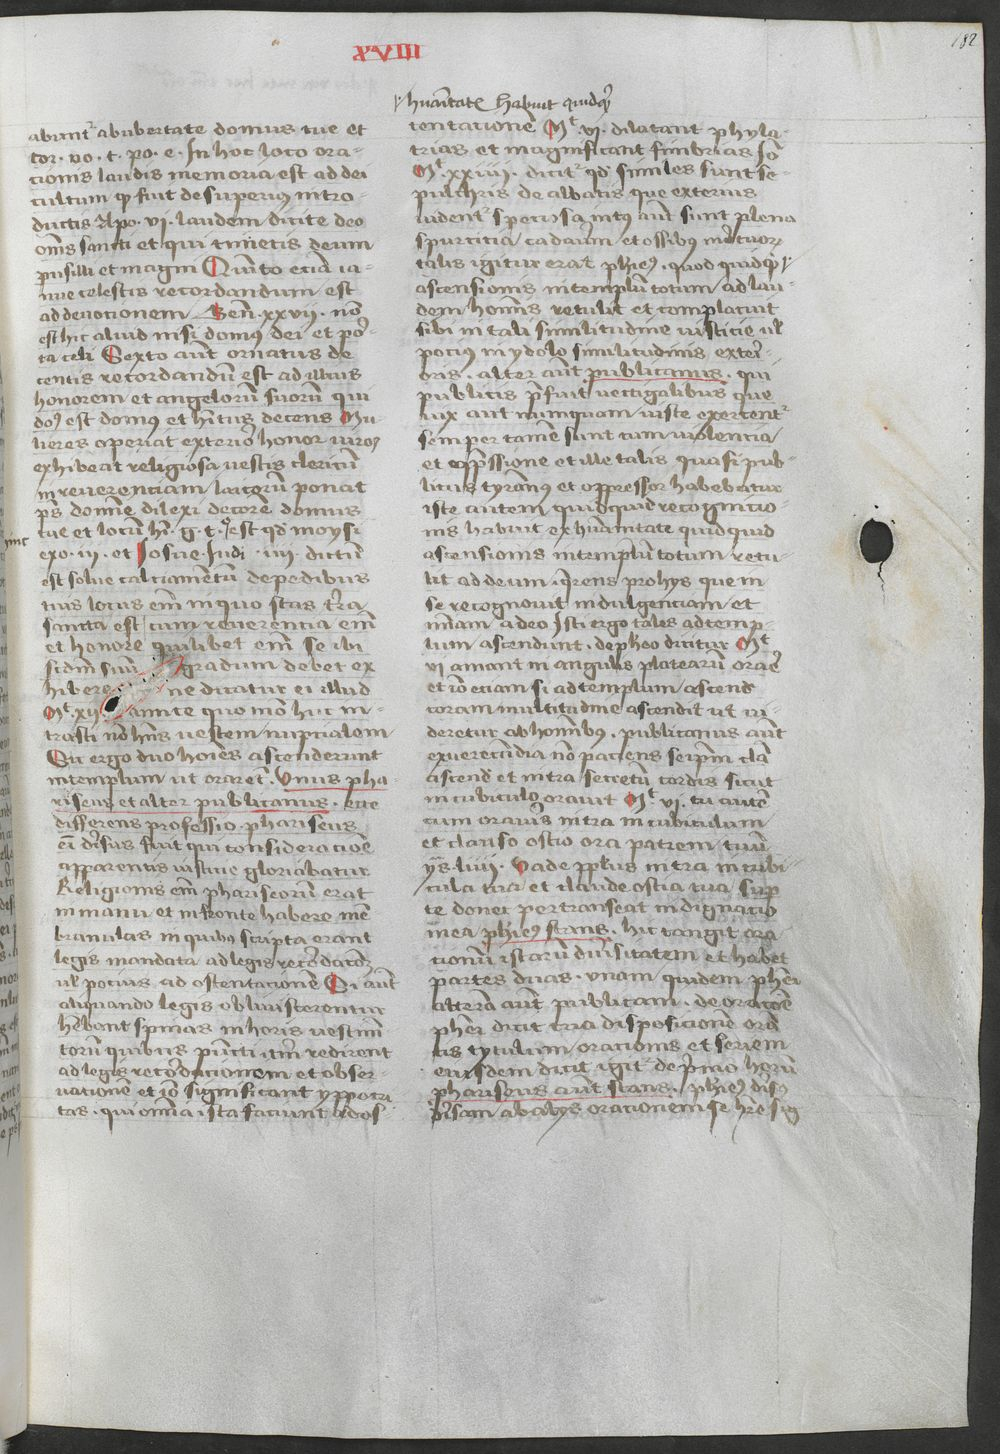 XVIII
182
humitatẽ habuit quidqͥd
abuntᷣ ab ubertate domus tue et
tor · vo · t · po · e · In hoc loco ora-
tionis laudis memoria est ad dei
cultum ꝙ fuit de superius intro-
ductis Apo · vi · laudem dicite deo
om̃s sancti et qui timetis deum
pusilli et magni Quinto eciã ia-
nue celestis recordandum est
ad devotionem Geñ · xxvii · nõ
est hic aliud nisi domus dei et por-
ta celi Sexto aũt ornatus de
centis recordandũ est ad illius
honorem et angelorũ suorũ qui
est domus et decens Mu-
lieres operiat exterior honor viros
exhibeat religiosa vestis clericũ
in reverenciam laicorũ ponat
pꝰs domine dilexi decorẽ domus
tue et locũ h̃ · g · t · est qd̃ moysi
exo · iii · et Iosue · Iudi · iiii · dictũ
est solve calciamentũ de pedibus
tuis locus em̃ in quo stas tr̃a
sancta est cum reverencia em̃
et honore quilibet em̃ se ibi
scdm̃ suũ gradum debet ex
hibere ne dicatur ei illud
Mͭ · xii amice quo mõ huc in-
trasti nõ hñs vestem nupcialem
Sic ergo duo hoies ascenderunt
in templum ut orarẽt · Unus pha-
riseus et alter publicanus · ecce
differens professio · phariseus
em̃ diuisus fuit qui consideracioẽ
apparentis iusticie gloriabatur
Religionis em̃ phariseorũ erat
in manu et in fronte habere mẽ
branulas in quibus scripta erant
legis mandata ad legis recordacõꝫ
ul̃ pocius ad ostentacionẽ Si aũt
aliquando legis obliviscerentur
hẽbant spinas in horis vestimẽ
torũ quibus pũcti itm̃ redirent
ad legis recordacionem et obser-
vacionẽ et iõ significant yppocri
tas · qui omia ista faciunt ad os-
tentacionẽ Mͭ vi · dilatant phyla-
trias et magnificant fimbrias Iõ
Mͭ · xxiiii · dicitᷣ qd̃ similes sunt se-
pulchris de albatis que exterius
uidentᷣ speciosa intus aũt sunt plena
spurcicia cadauerũ et ossibus mortuorꝫ
talis igitur erat phiẽs · quod quidqͥd
ascensionis in templũ totum ad lau-
dem hominis retulit et complacuit
sibi in tali similitudine iusticie ul̃
pocius in ydolo similitudinis exteri-
oris · alter aũt publicanus · qui
publicis p̃fuit vectigalibus que
uix aut numquam iuste exercentᷣ
semper tamẽ sunt cum violencia
et opp̃ssione et ille talis quasi pub-
licus tyrannus et oppressor habebatur
iste autem quidquid recognicio-
nis habuit ex humitate quidquid
ascensionis in templum totum retu-
lit ad deum · q̃rens pro hys que in
se recognovit indulgenciam et
miam a deo Isti ergo tales ad temp-
lum ascendunt · de pheo dicitur Mͭ
vi amant in angulis platearũ orare
et iõ eciam si ad templum ascendit
coram multitudine ascendit ut vi-
deretur ab hominibus · publicanus aũt
ex verecundia nõ paciens seipm̃ clã
ascendit et intra secretũ cordis sicut
in cubiculo oravit Mͭ vi · tu autẽ
cum oraveris intra in cubiculum
et clauso ostio ora patrem tuũ
ys · liiii · Vade pplus intra in cubi
cula tua et claude ostia tua sup̃
te donec pertranseat indignacio
mea phiẽs stans · hic tangit ora
cionũ istarũ diuisitatem et habet
partes duas · unam quidem phei
alterã aũt publicani · de oracõe
phei dicit tria disposicionẽ oran
tis tytulum oracionis et seriem
eiusdem dicit igitᷣ de primo horũ
phariseus aũt stans · phiẽs
ab alys orationem se hr̃e